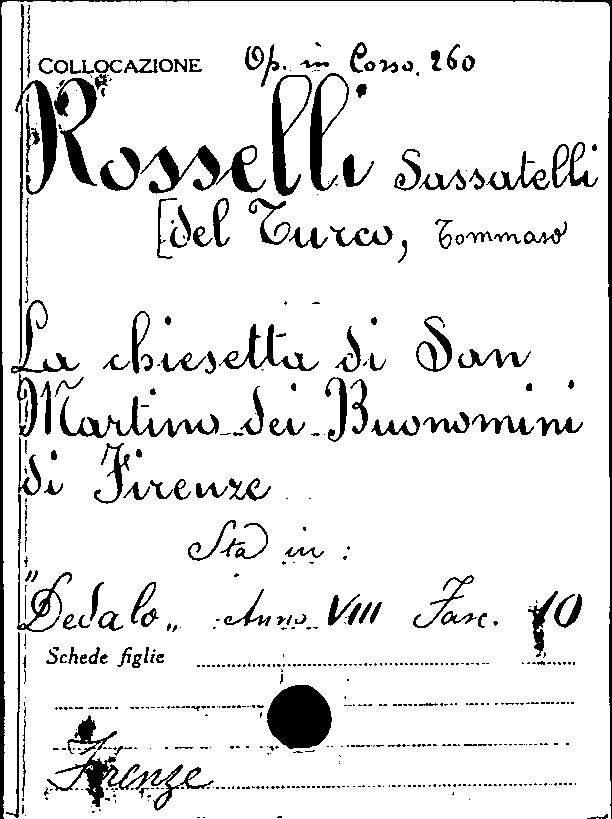 COLLOCAZIONE Op. in Corso. 260
Rosselli Sassatelli
[del Turco, Tommaso
La chiesetta di San
Martino dei Buonomini
di Firenze
Sta in :
"Dedalo„ Anno VIII Fasc. 10
Schede figlie
Firenze